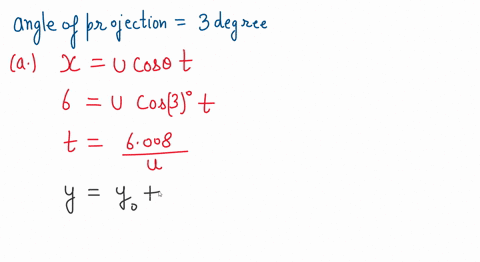 Angle of projection = 3 degree
(a.) x = u cosθ t
6 = u cos(3)° t
t = 6.008 / u
y = y₀ +